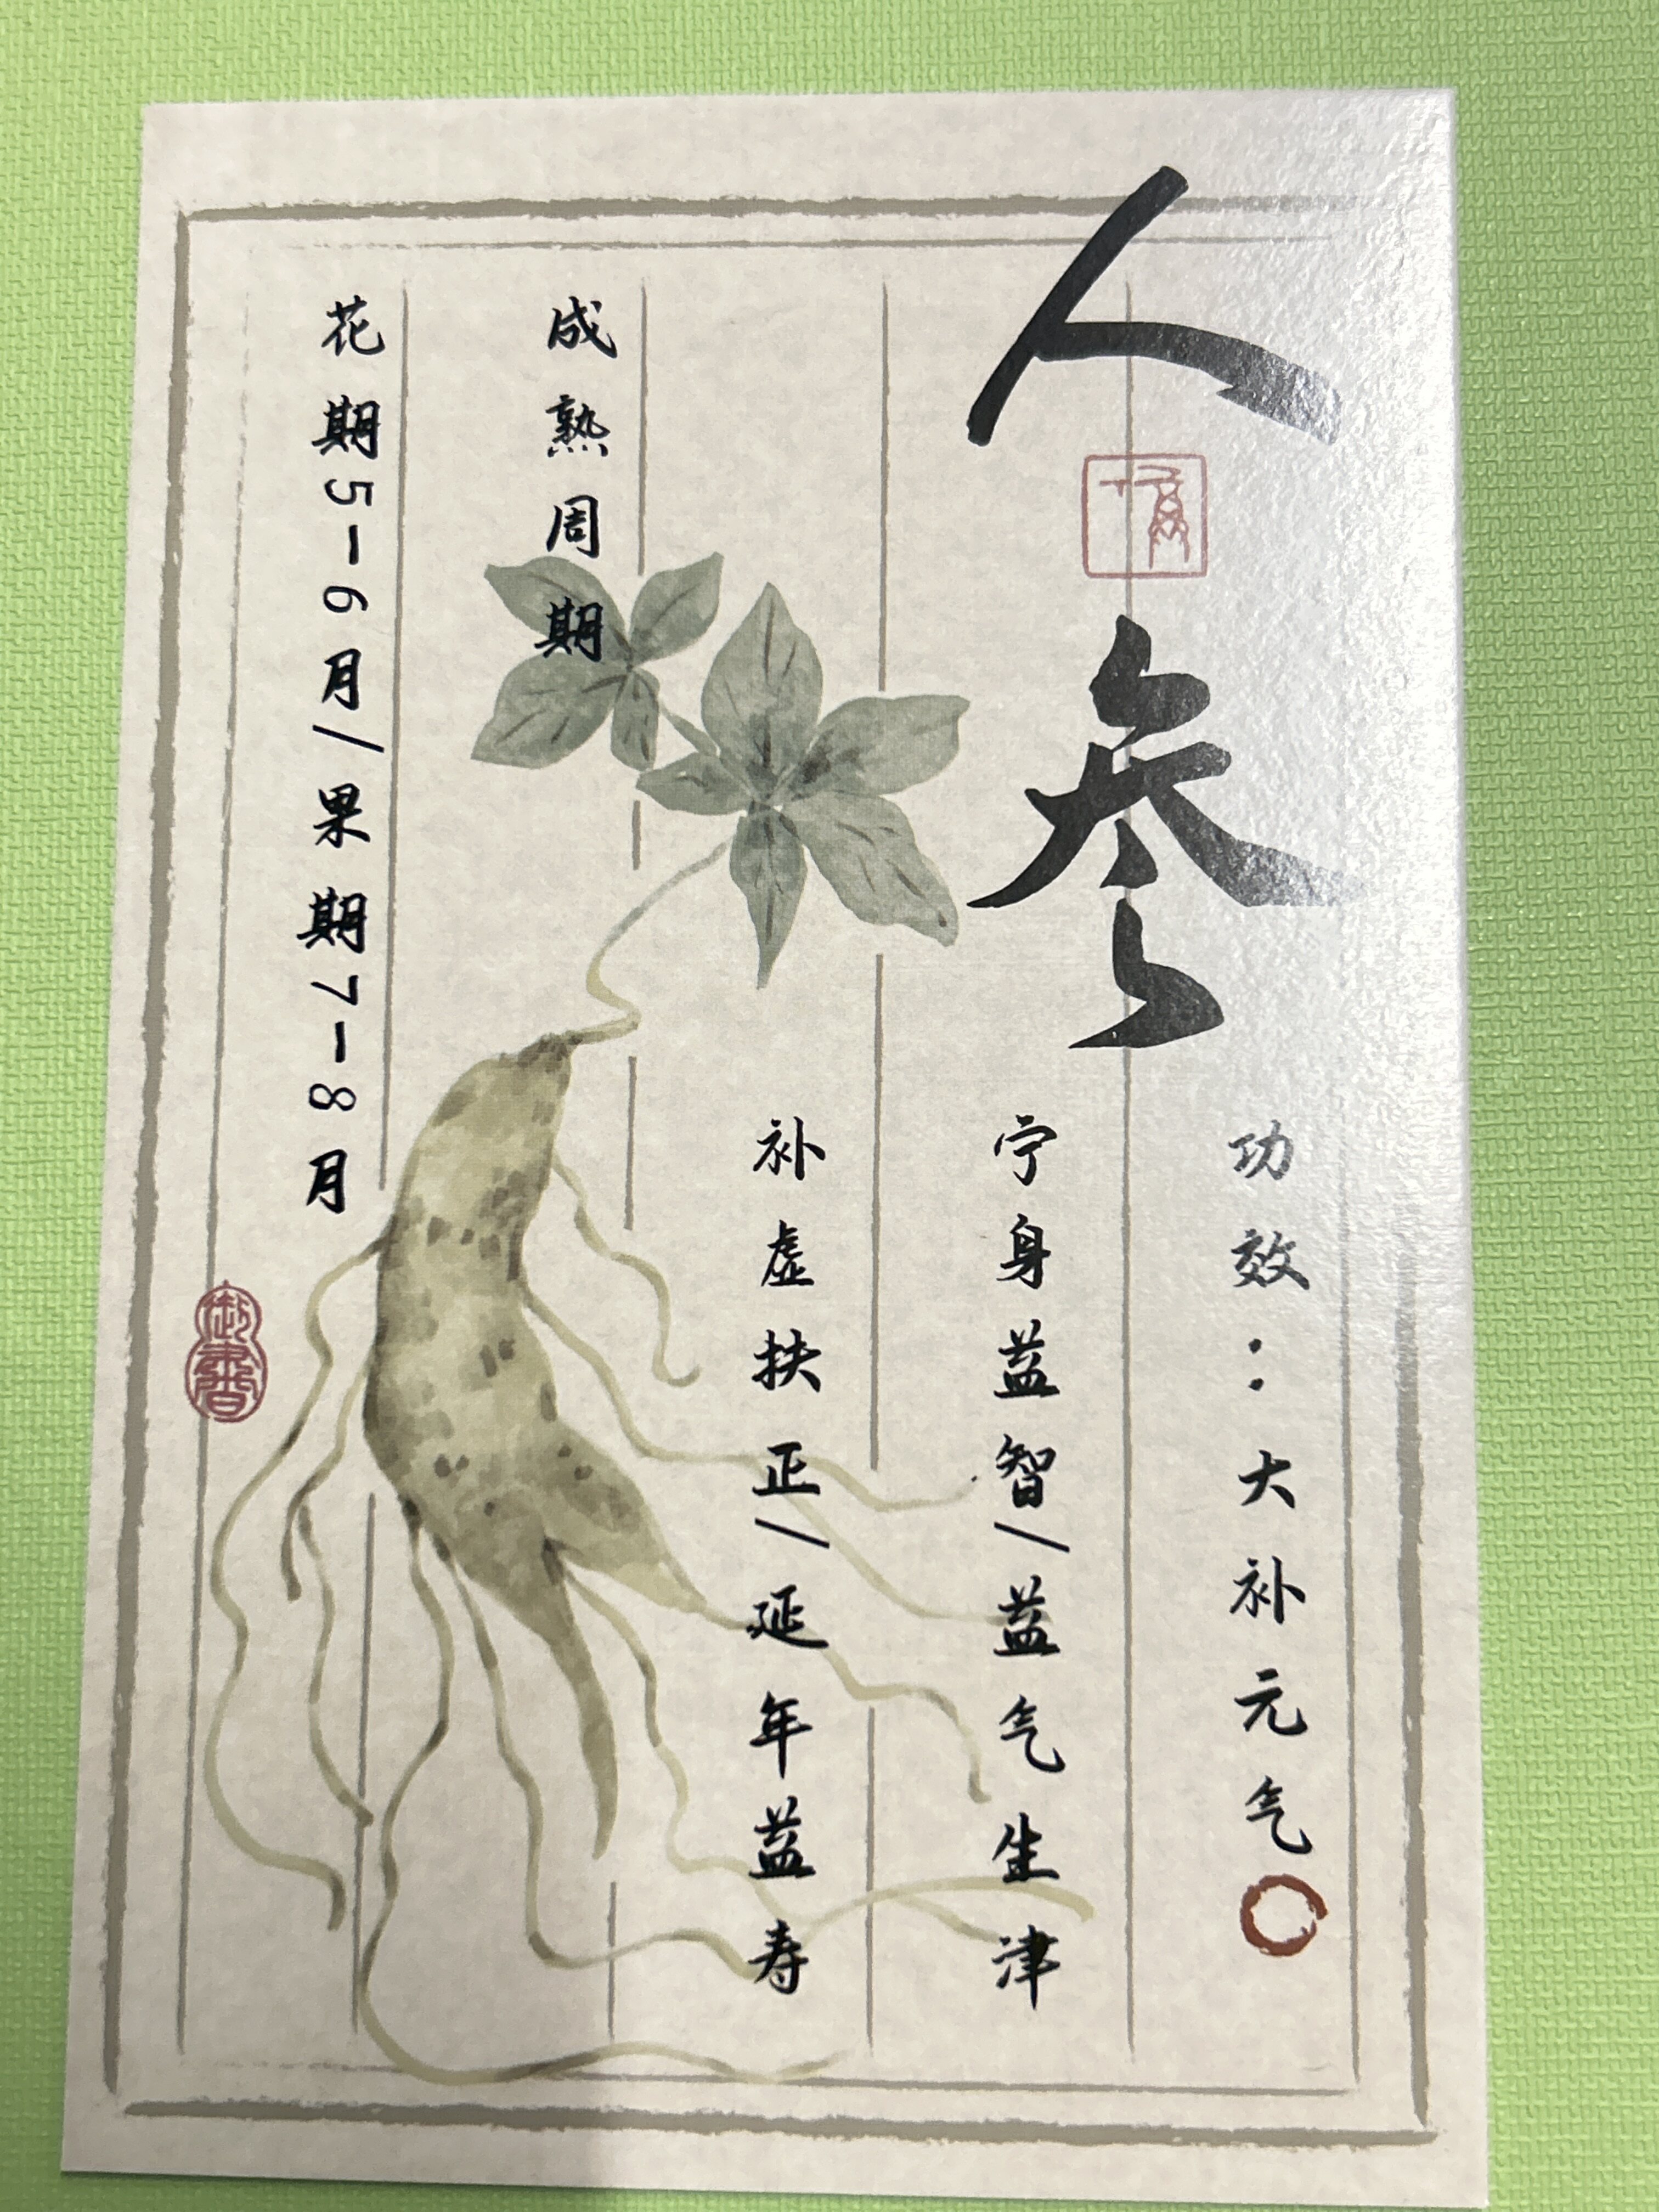 人参
功效:大补元气
宁身益智/益气生津
补虚扶正/延年益寿
成熟周期
花期5-6月/果期7-8月